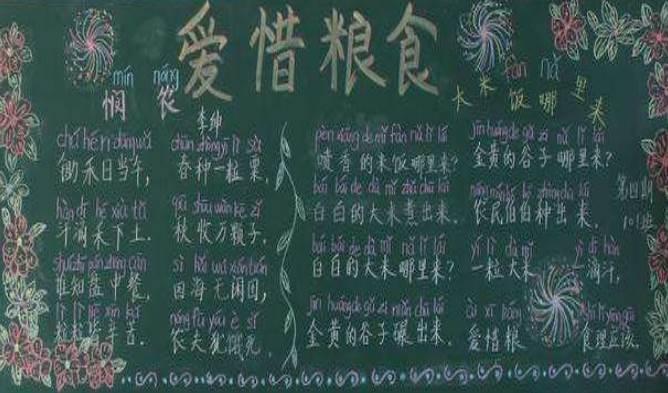 爱惜粮食
mín nóng
悯农
李绅
chú hé rì dāng wǔ
锄禾日当午,
hàn dī hé xià tǔ
汗滴禾下土.
shuí zhī pán zhōng cān
谁知盘中餐,
lì lì jiē xīn kǔ
粒粒皆辛苦.
chūn zhòng yī lì sù
春种一粒粟,
qiū shōu wàn kē zǐ
秋收万颗子.
sì hǎi wú xián tián
四海无闲田,
nóng fū yóu è sǐ
农夫犹饿死.
fàn nǎ
大米饭哪里来
pèn xiāng de mǐ fàn nǎ lǐ lái
喷香的米饭哪里来?
bái bái de dà mǐ zhǔ chū lái
白白的大米煮出来.
bái bái de dà mǐ nǎ lǐ lái
白白的大米哪里来?
jīn huáng de gǔ zi niǎn chū lái
金黄的谷子碾出来.
jīn huáng de gǔ zi nǎ lǐ lái
金黄的谷子哪里来?
nóng mín zhòng chū lái
农民伯伯种出来.
yī lì dà mǐ yī dī hàn
一粒大米 一滴汗,
ài xī liáng shí lǐ yīng gāi
爱惜粮 食理应该.
第四期
101班